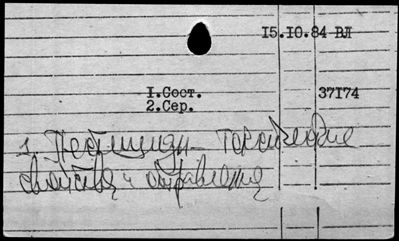 15.10.84 ВЛ
1.Сост.
37174
2.Сер.
1. Пестициды - Токсические
свойства и отравления